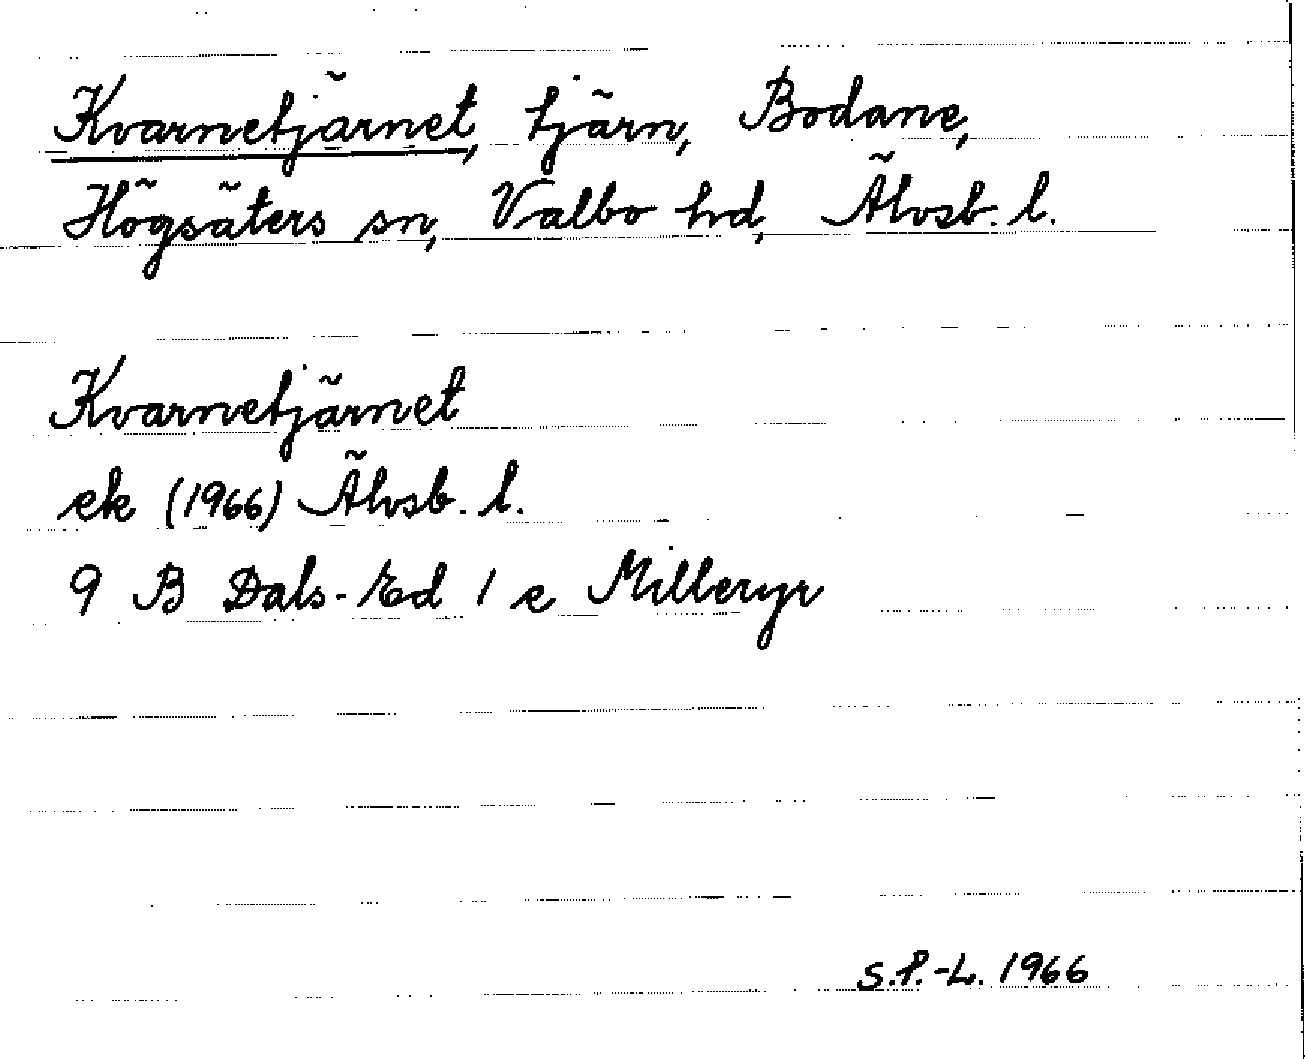 Kvarnetjärnet, tjärn, Bodane,
Högsäters sn, Valbo hd, Älvsb. l.
Kvarnetjärnet
ek (1966) Älvsb. l.
9 B Dals-Ed 1 e Milleryr
S.P.-L. 1966